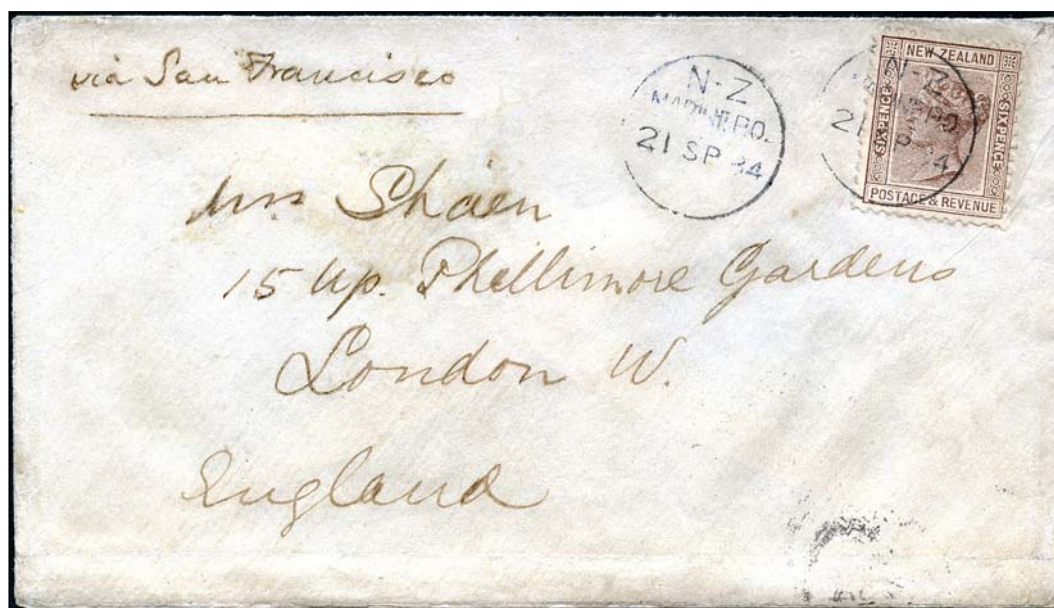 via San Francisco
N-Z
MARINE P.O.
21 SP 84
NEW ZEALAND
SIXPENCE
SIXPENCE
POSTAGE & REVENUE
N-Z
P.O
21 SP 4
Shaen
15 Up. Phillimore Gardens
London W.
England